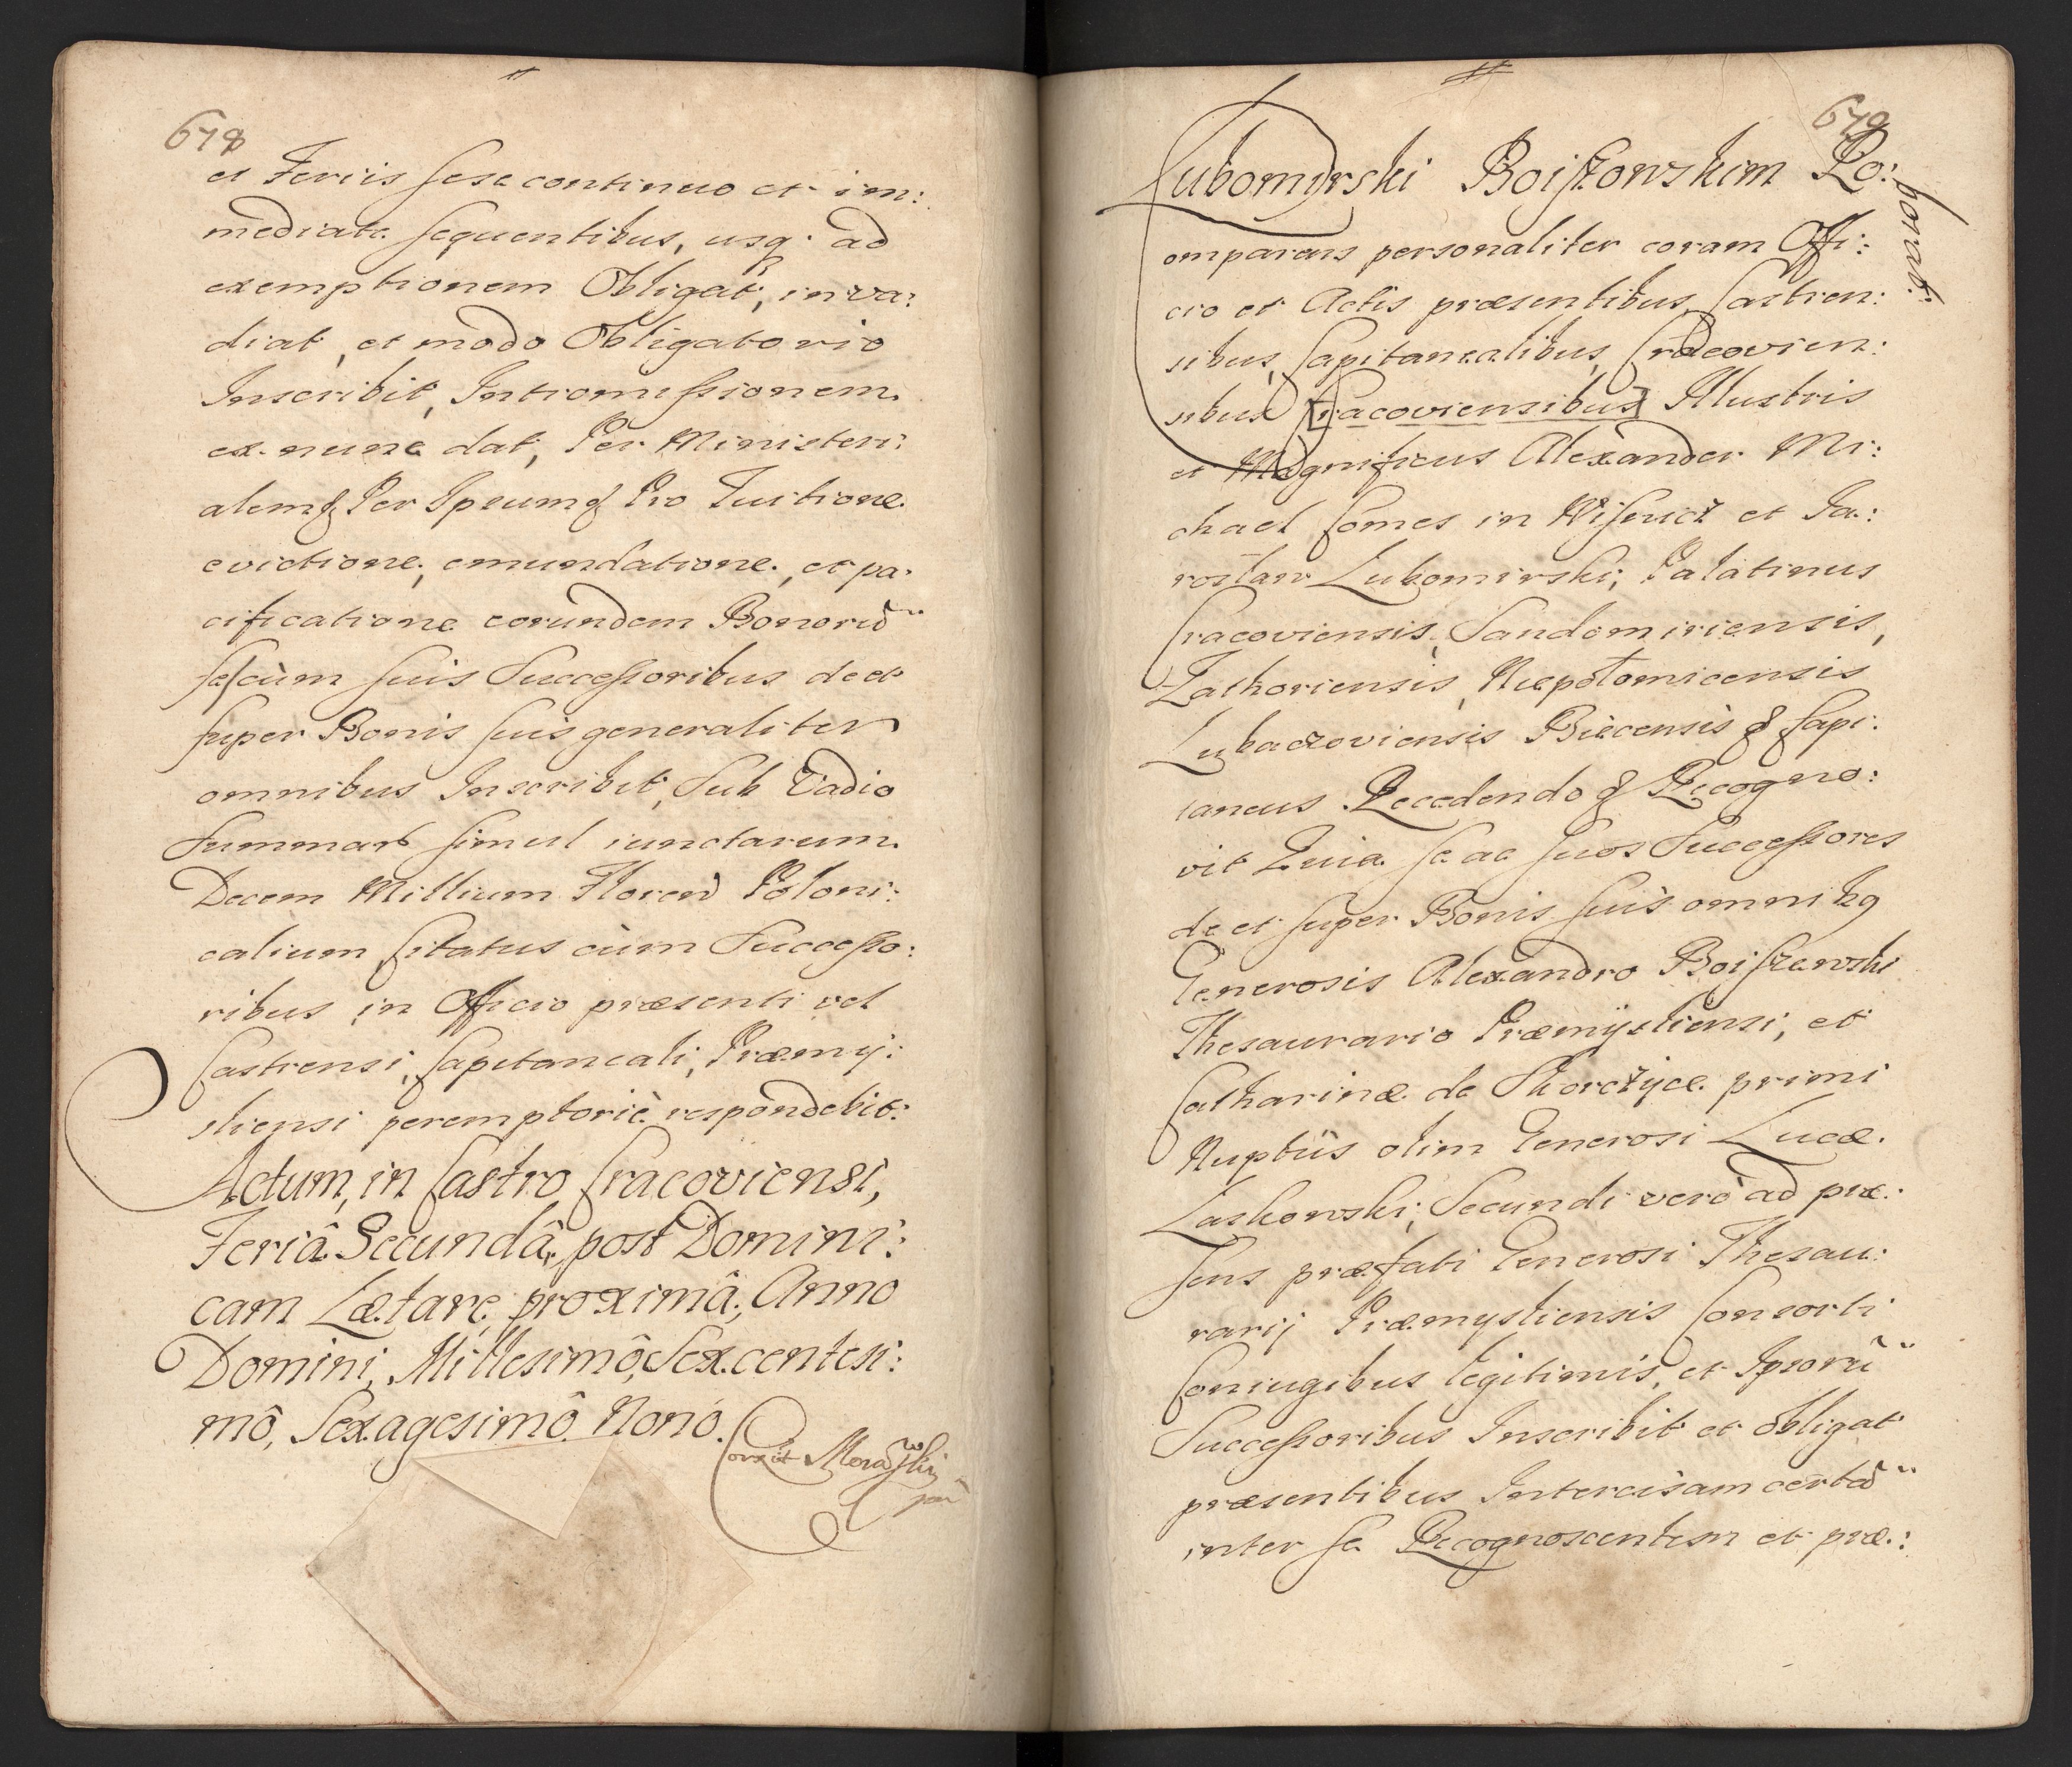 678
et Feriis sese continuo et im:
mediate sequentibus, usq. ad
exemptionem Obligat, inva:
diat, et modo Obligatorio
Inscribit, Intromissionem
ex nunc dat, Per Ministeri:
alem & Per Ipsum & Pro Tuitione
evictione, emundatione, et pa:
cificatione eorundem Bonorũ
se cùm suis Successoribus de et
super Bonis suis generaliter
omnibus Inscribit, Sub Vadio
Summar simul iunctarum
Decem Millium Floren Poloni:
calium, Citatus cùm Successo:
ribus in Officio præsenti vel
Castrensi, Capitaneali, Præmij:
sliensi peremptoriè respondebit.
Actum, in Castro Cracoviensi,
Feriâ Secundâ, post Domini:
cam Lætare, proximâ, Anno
Domini, Millesimô, Sexcentesi:
mô, Sexagesimô Nonô.
Corexit Morawski
679
Lubomyrski Boiszowskim Ro:
borat:
omparens personaliter coram Offi:
cio et Actis præsentibus, Castren:
sibus, Capitanealibus, Cracovien:
sibus [Cracoviensibus] Illustris
et Magnificus Alexander Mi:
chael Comes in Wisnicz et Ja:
roslaw Lubomirski, Palatinus
Cracoviensis, Sandomiriensis,
Zathoriensis, Niepolomicensis
Lubaczoviensis Biecensis & Capi:
taneus Recedendo & Recogno:
vit Quia se ac suos Successores
de et super Bonis suis omnibq
Generosis Alexandro Boiszewski
Thesaurario Præmijsliensi, et
Catharinæ de Skorczyce primi
Nuptiis olim Generosi Lucæ
Laskowski, Secundi verò ad præ:
sens præfati Generosi Thesau:
rarij Præmysliensis Consorti
Coniugibus legitimis, et Ipsorũ
Successoribus Inscribit et obligat
præsentibus Intercisam certã
inter se Recognoscentem et præ: